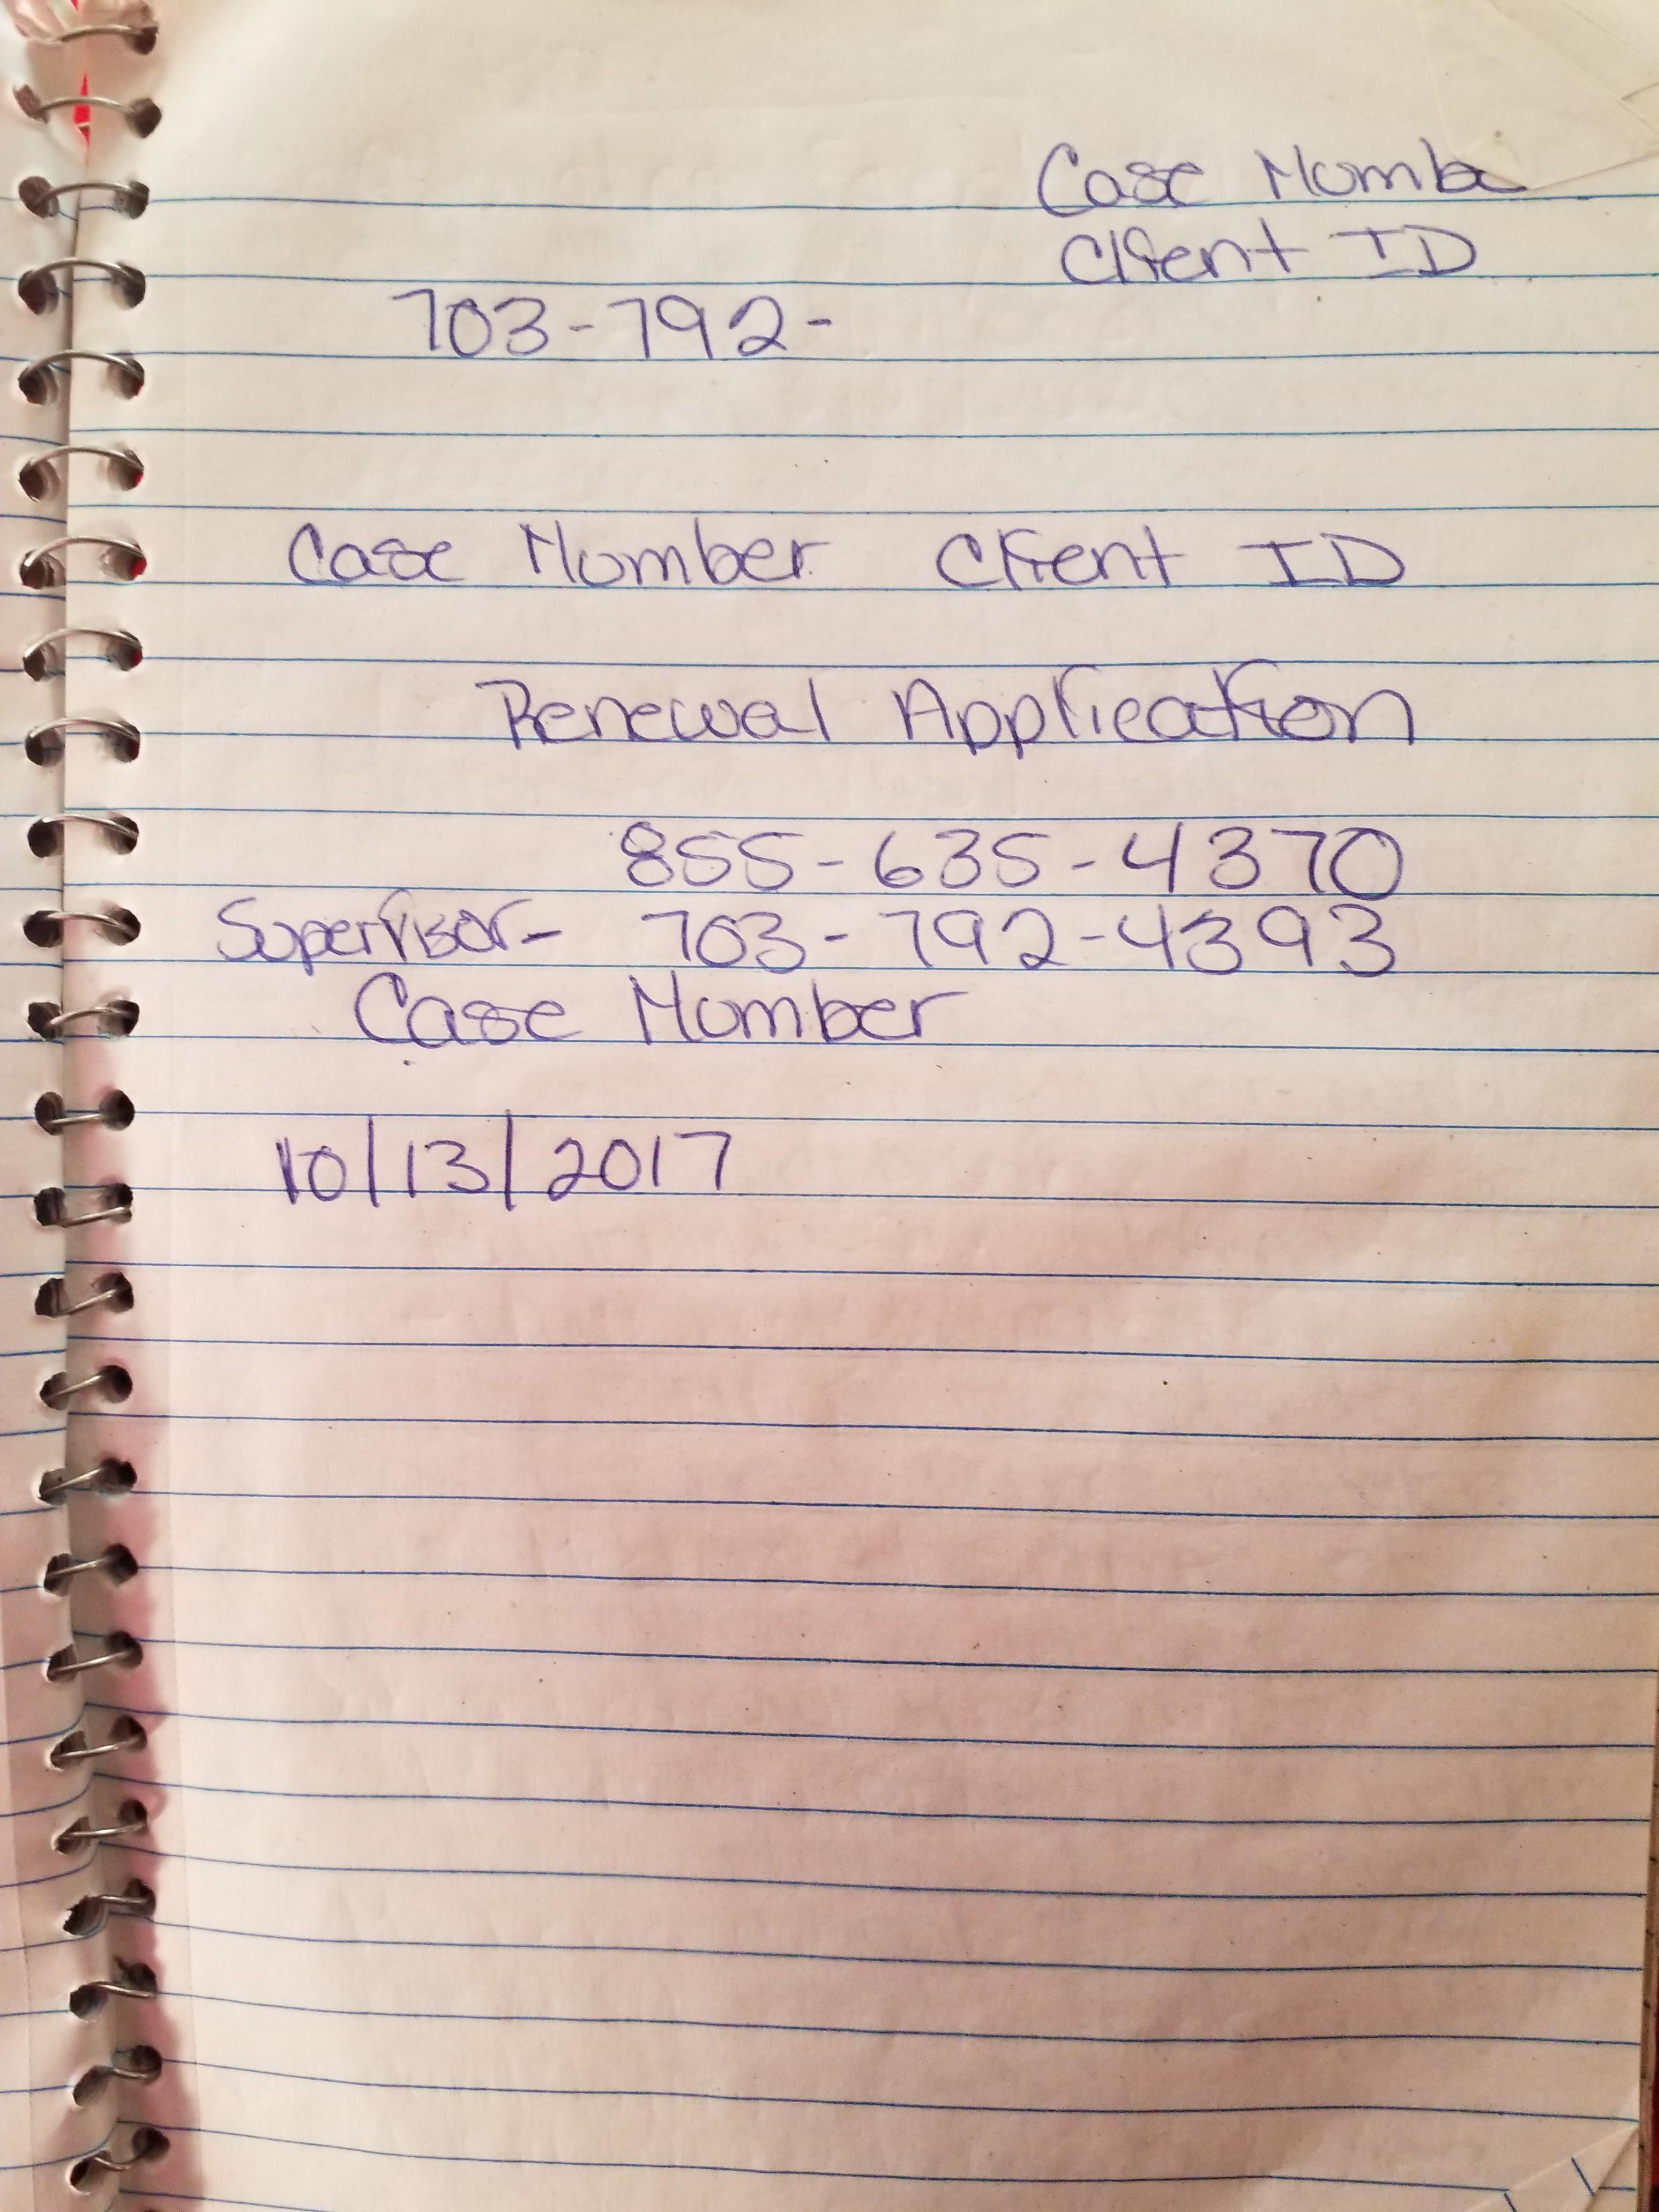 Case Numbe
Client ID
703-792-
Case Number Client ID
Renewal Application
855-635-4370
Supervisor- 703-792-4393
Case Number
10/13/2017